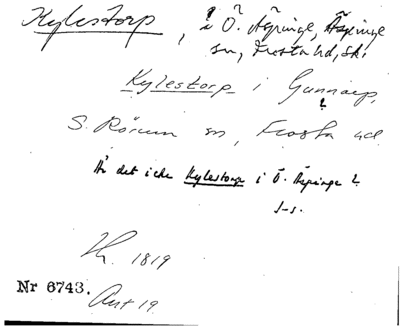 Kylestorp, i Ö. Äspinge, Äspinge
sn, Frosta hd, Sk.
Kylestorp i Gunnarp,
?
S. Rörum sn, Frosta hd
Är det icke Kylestorp i Ö. Äspinge?
J-s.
1819
Nr 6743.
Ant 19.